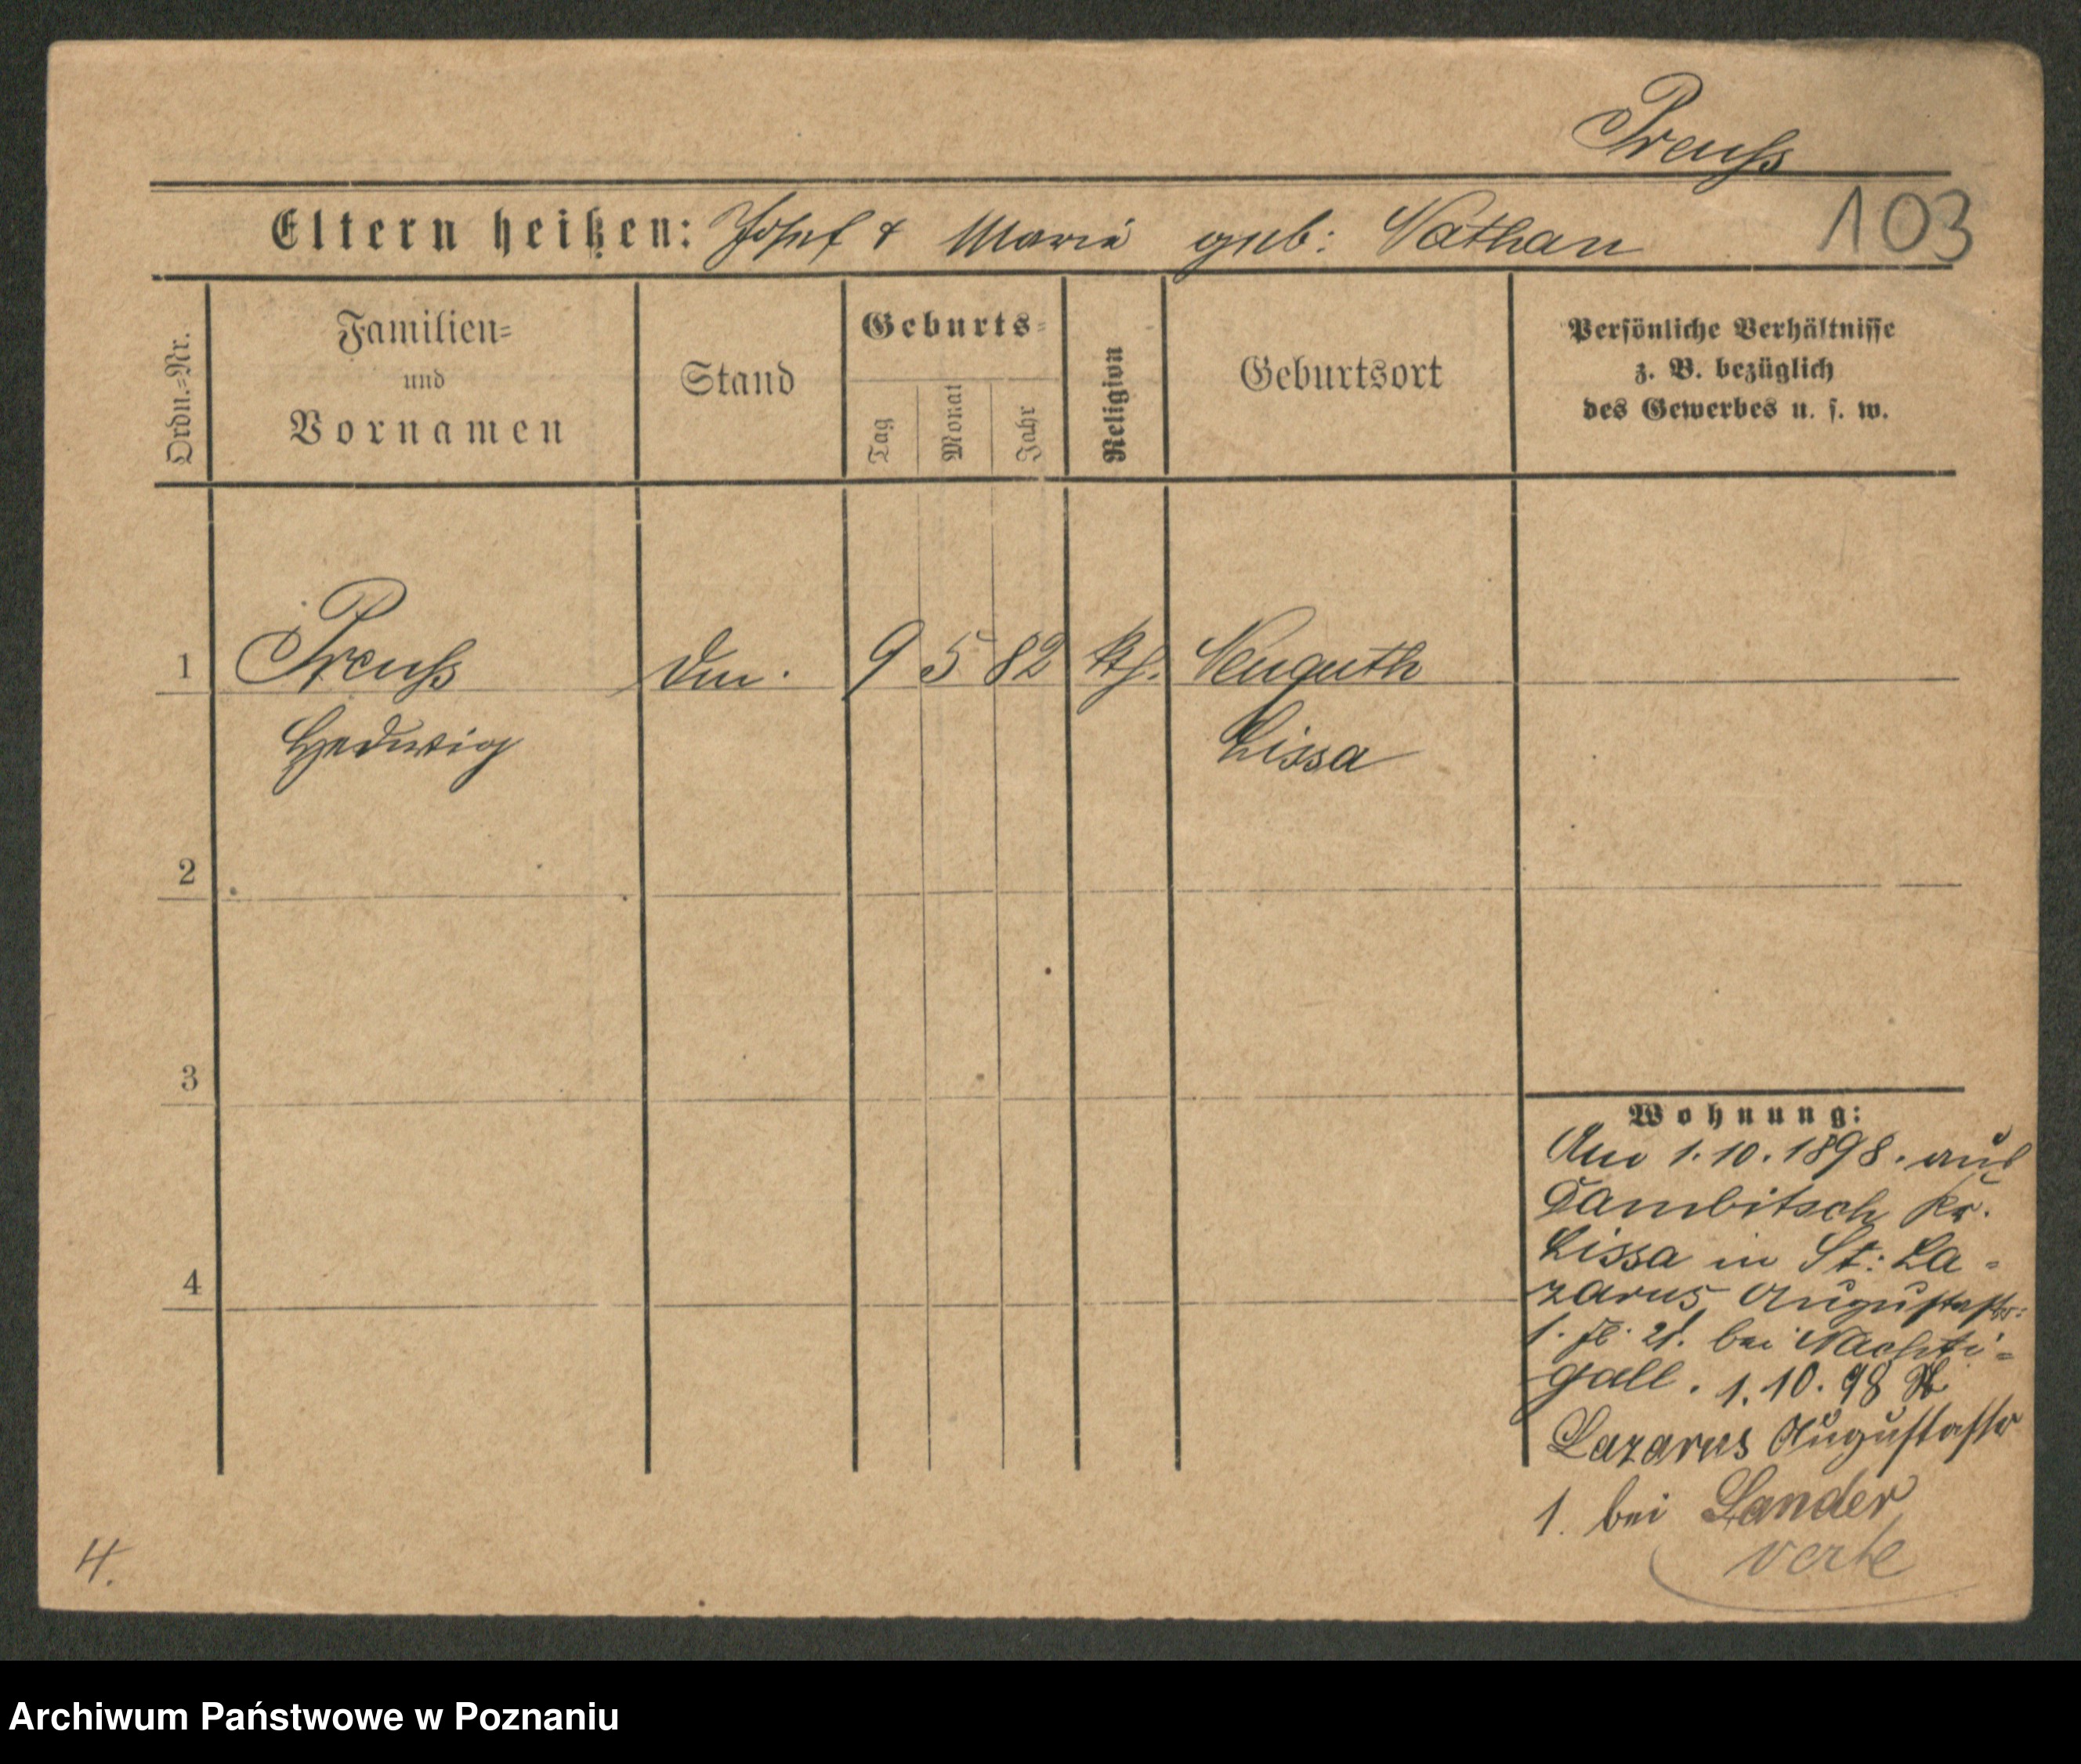 Preuß
Eltern heißen: Josef & Maria geb: Nathan
103
Ordn.=Nr.
Familien=
und
Vornamen
Stand
Geburts=
Tag
Monat
Jahr
Religion
Geburtsort
Persönliche Verhältnisse
z. B. bezüglich
des Gewerbes u. s. w.
1 Preuß 9 5 82 kth. Neuguth
Hedwig Lissa
2
3
4
Wohnung:
Am 1.10.1898. aus
Dambitsch Kr.
Lissa in St: La-
zarus Augustastr:
1. bei Nachti-
gall. 1.10.98
Lazarus Augustastr
1. bei Lander
verte
4.
Archiwum Państwowe w Poznaniu